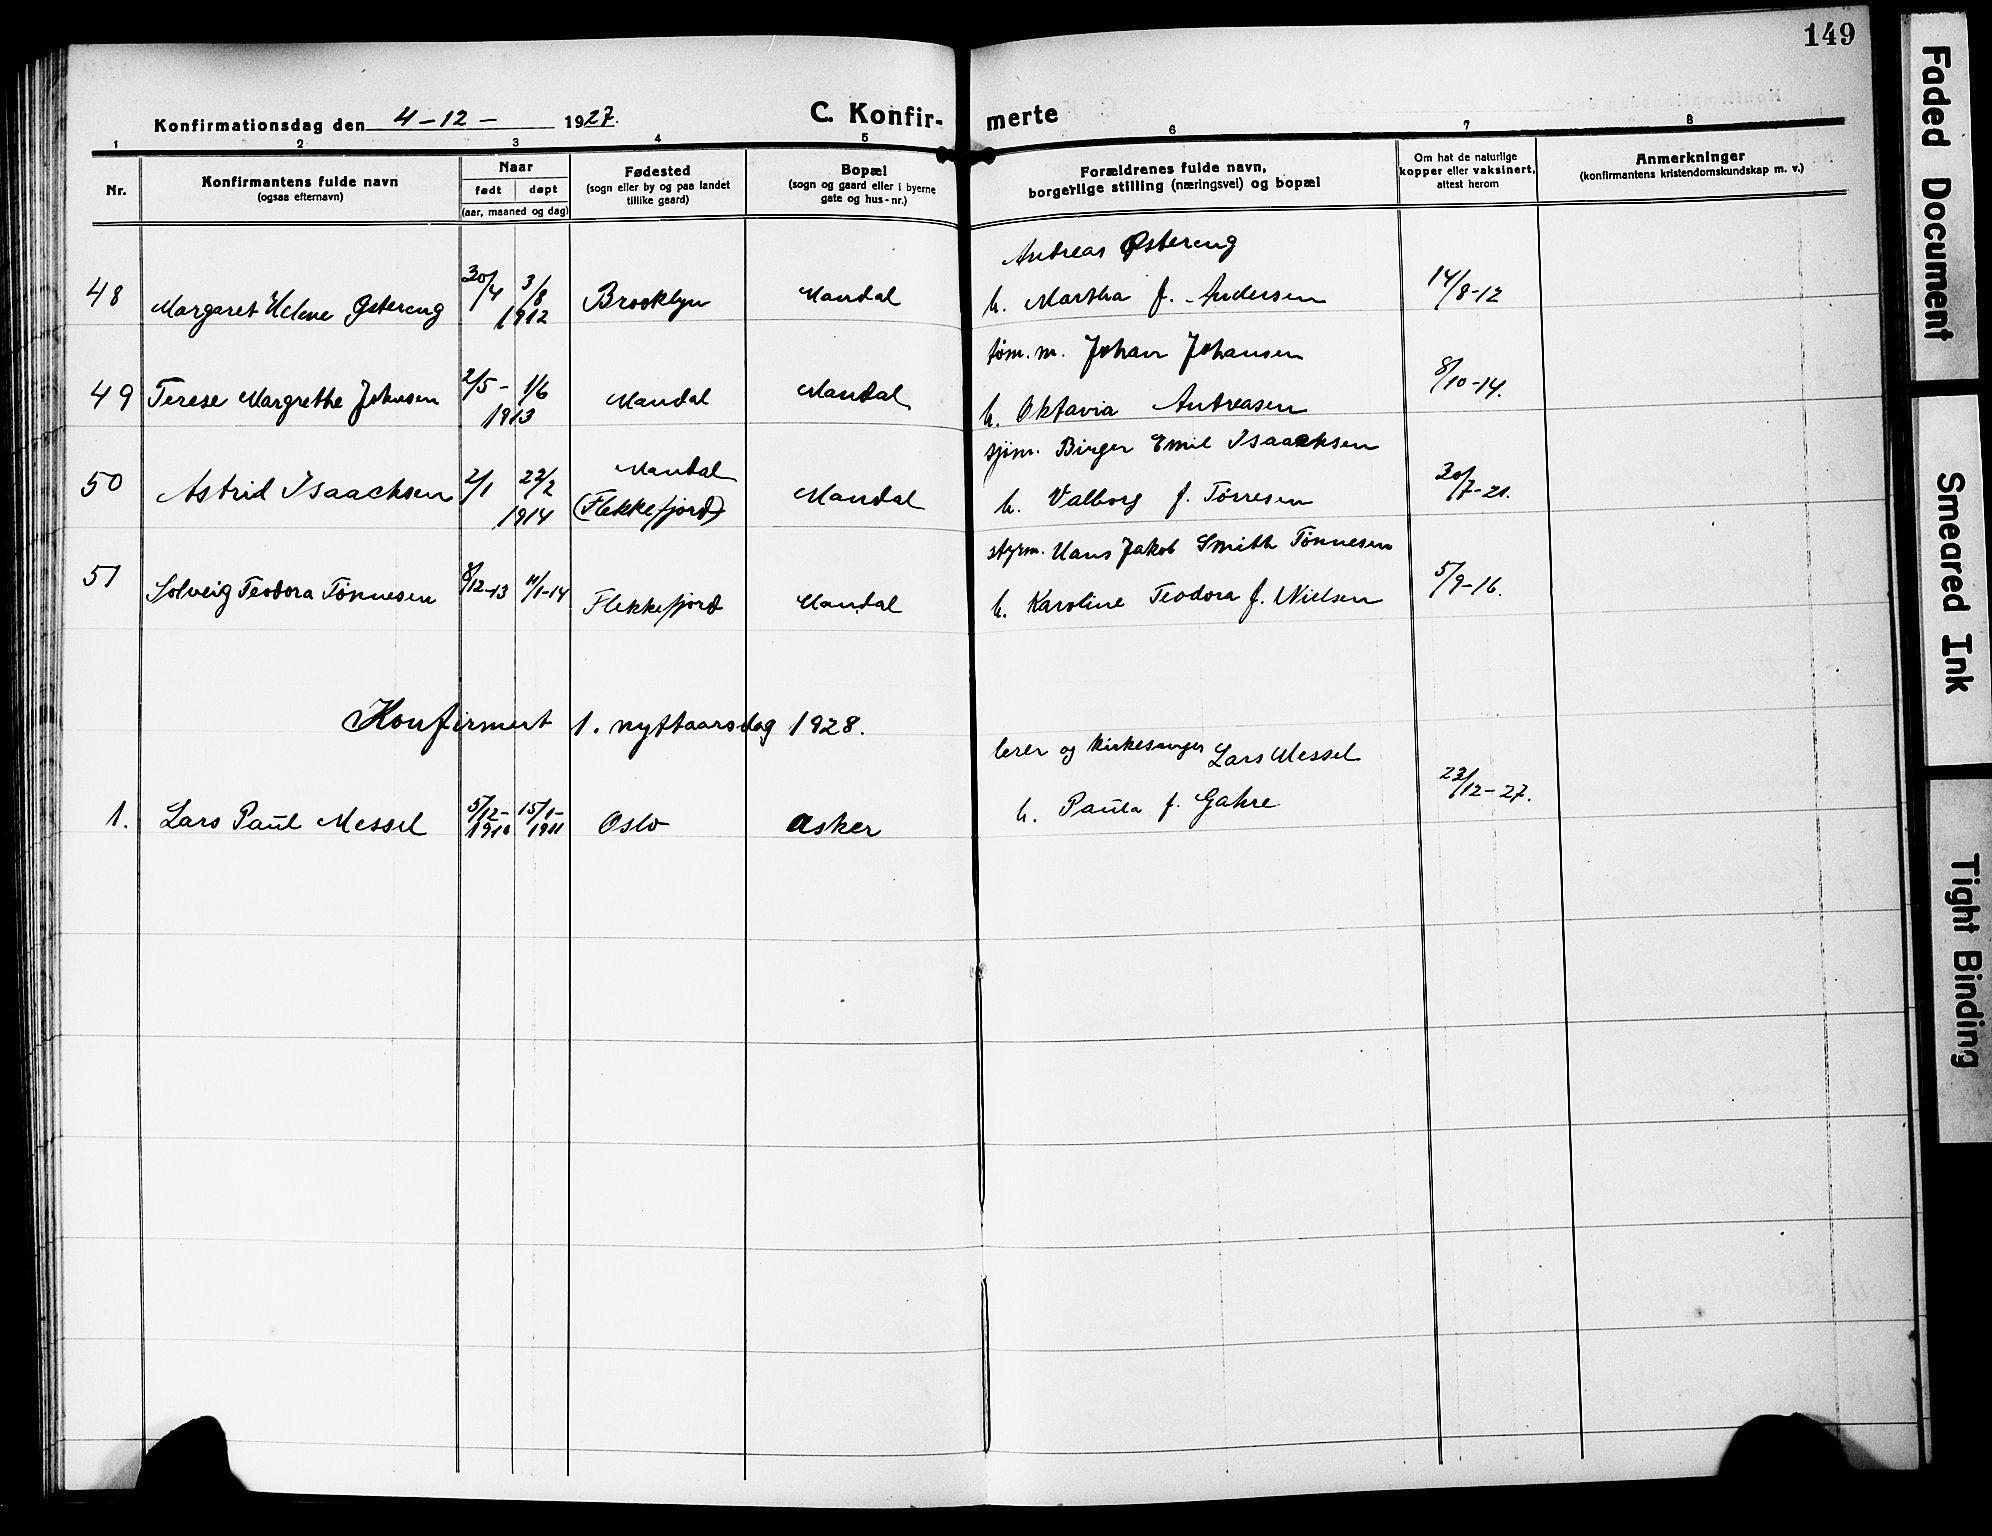 149
Konfirmationsdag den 4-12- 1927.
C. Konfirmerte
1 2 3 4 5 6 7 8
Nr.
Konfirmantens fulde navn
(ogsaa efternavn)
Naar
født døpt
(aar, maaned og dag)
Fødested
(sogn eller by og paa landet
tillike gaard)
Bopæl
(sogn og gaard eller i byerne
gate og hus-nr.)
Forældrenes fulde navn,
borgerlige stilling (næringsvei) og bopæl
Om hat de naturlige
kopper eller vaksinert,
attest herom
Anmerkninger
(konfirmantens kristendomskundskap m. v.)
Andreas Østereng
48 Margaret Helene Østereng 30/4 3/8 1912 Brooklyn Mandal h. Martha f. Andersen 14/8-12
tøm. m. Johan Johansen
49 Terese Margrethe Johnsen 2/5- 1/6 1913 Mandal Mandal h. Oktavia Andreasen 8/10-14.
sjøm. Birger Emil Isaachsen
50 Astrid Isaachsen 2/1 22/2 1914 Mandal (Flekkefjord) Mandal h. Valborg f. Tørresen 30/7-21.
styrm. Hans Jakob Smith Tønnesen
51 Solveig Teodora Tønnesen 8/12-13 11/1-14 Flekkefjord Mandal h. Karoline Teodora f. Nielsen 5/9-16.
Konfirmert 1. nyttaarsdag 1928.
lærer og kirkesanger Lars Messel
1. Lars Paul Messel 5/12-1910 15/1-1911 Oslo Asker h. Paula f. Gahre 23/12-27.
Faded Document
Smeared Ink
Tight Binding